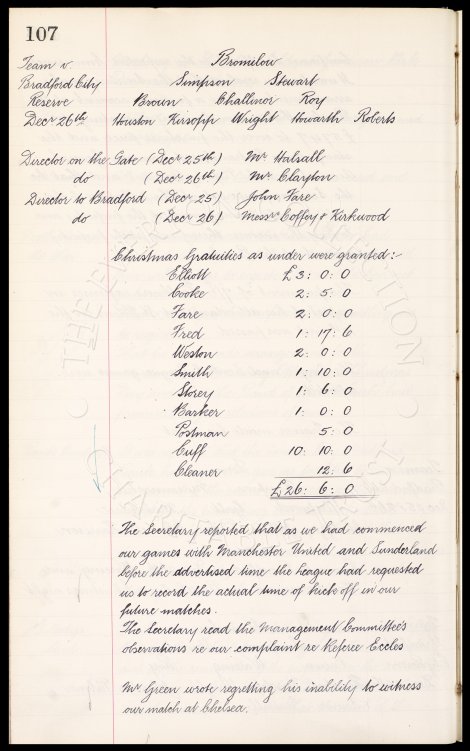 107
Team v. Bromilow
Bradford City Simpson Stewart
Reserve Brown Challinor Roy
Decr 26th Houston Kirsopp Wright Howarth Roberts
Director on the Gate (Decr 25th) Mr Halsall
do (Decr 26th) Mr Clayton
Director to Bradford (Decr 25) John Fare
do (Decr 26) Messrs Coffey & Kirkwood
Christmas Gratuities as under were granted:-
Elliott £3: 0: 0
Cooke 2: 5: 0
Fare 2: 0: 0
Fred 1: 17: 6
Weston 2: 0: 0
Smith 1: 10: 0
Storey 1: 6: 0
Barker 1: 0: 0
Postman 5: 0
Cuff 10: 10: 0
Cleaner 12: 6
£26: 6: 0
The Secretary reported that as we had commenced
our games with Manchester United and Sunderland
before the advertised time the League had requested
us to record the actual time of kick off in our
future matches.
The Secretary read the Management Committee's
observations re our complaint re Referee Eccles
Mr Green wrote regretting his inability to witness
our match at Chelsea.
THE EVERTON COLLECTION